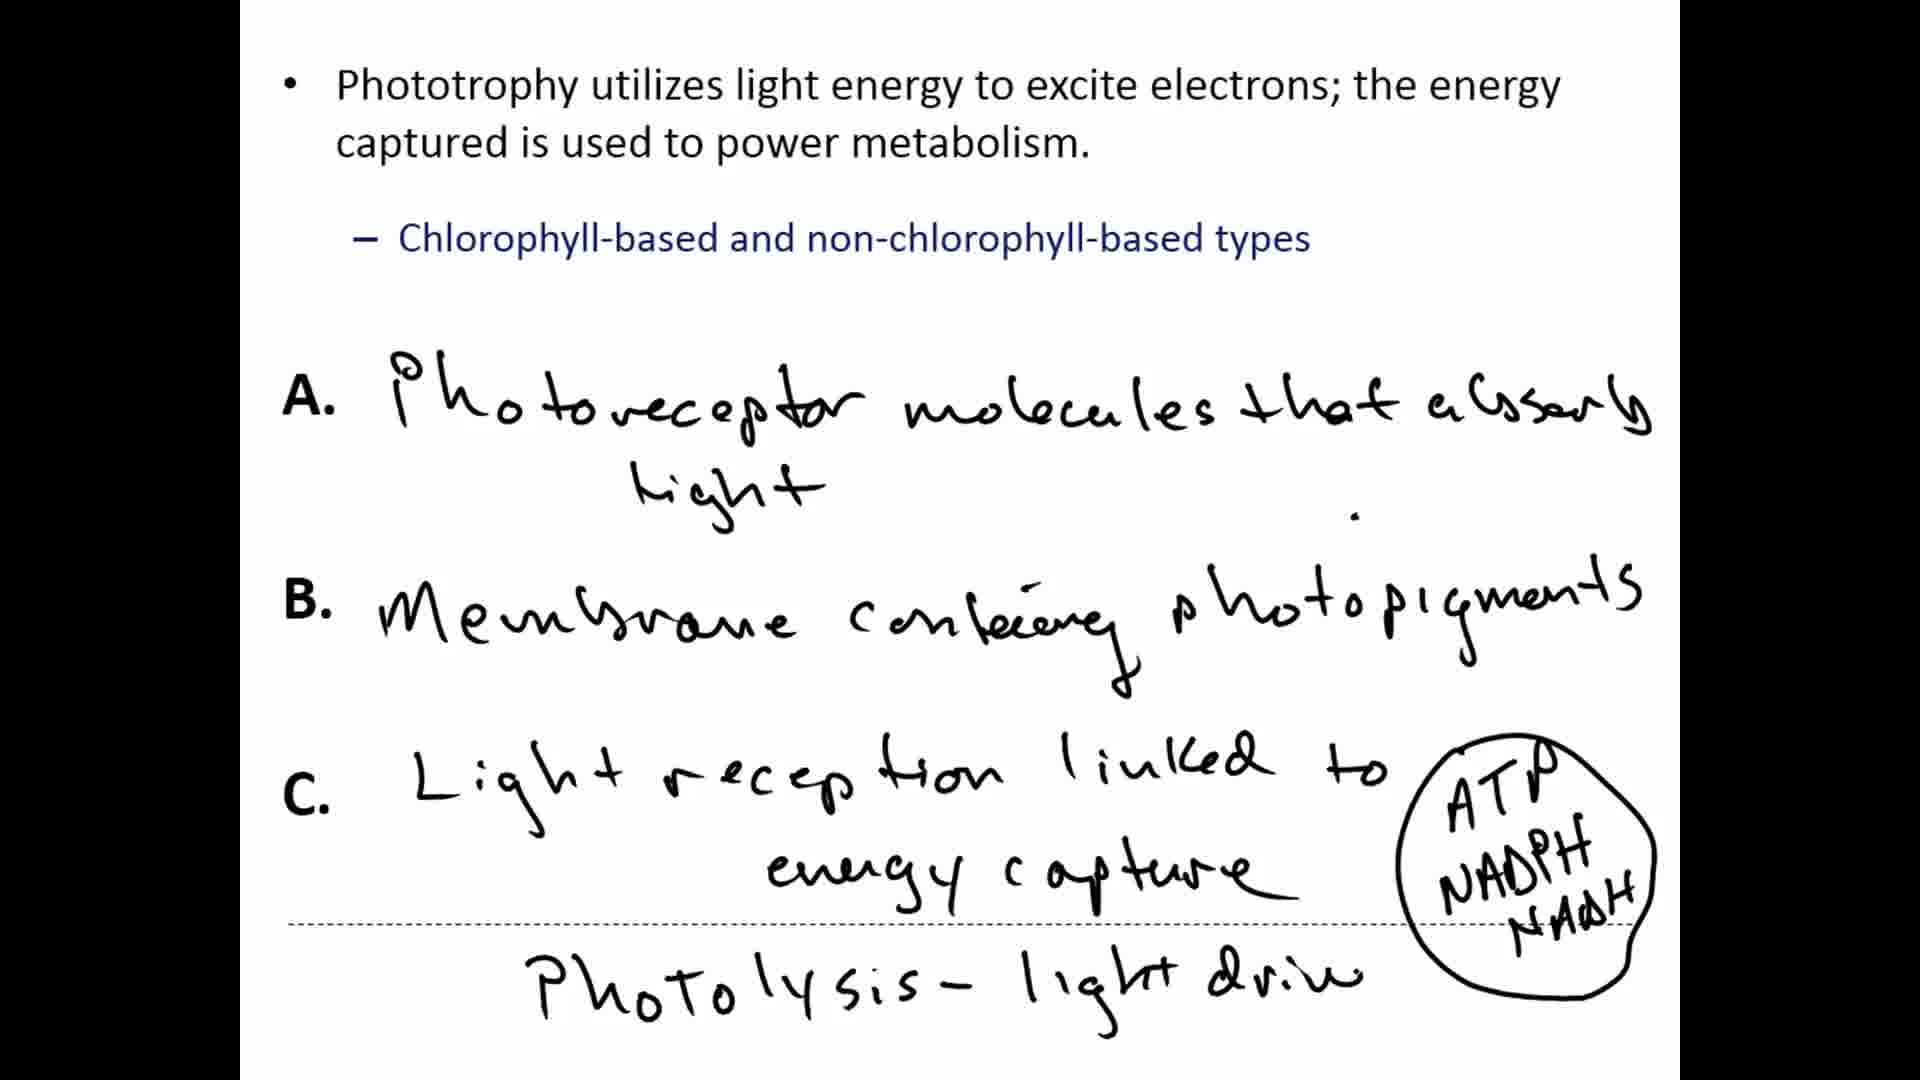 • Phototrophy utilizes light energy to excite electrons; the energy
captured is used to power metabolism.
– Chlorophyll-based and non-chlorophyll-based types
A. Photoreceptor molecules that absorb
light
B. Membrane containing photopigments
C. Light reception linked to
energy capture
ATP
NADPH
NADH
Photolysis - light driv